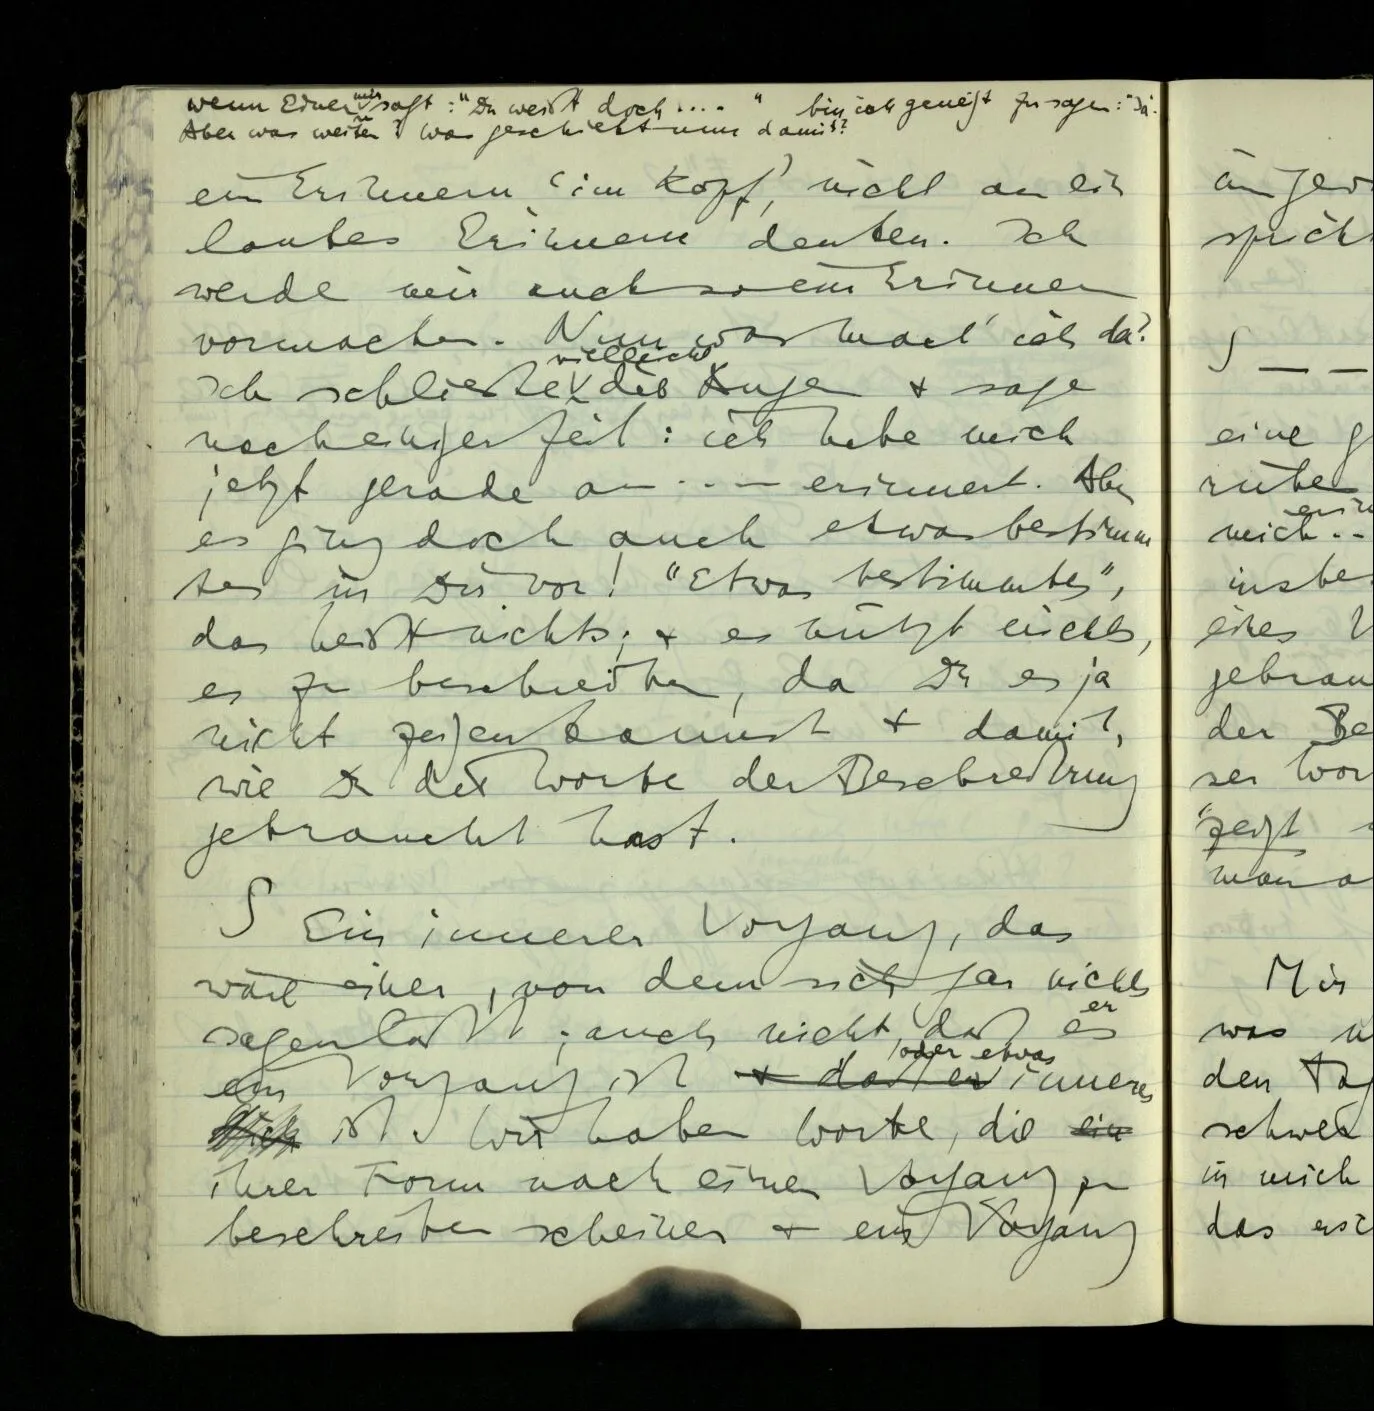 wenn Einer mir sagt: "Du weißt doch .... " bin ich geneigt zu sagen: "Ja".
Aber was weiter? Was geschieht nun damit?
ein Erinnern 'im Kopf', nicht an ein
lautes Erinnern denken. Ich
werde mir auch so ein Erinnern
vormachen. Nun was mach' ich da?
Ich schließe vielleicht die Augen + sage
nach einiger Zeit: ich habe mich
jetzt gerade an ... erinnert. Aber
es ging doch auch etwas bestimm
tes in Dir vor! "Etwas bestimmtes",
das heißt nichts; + es nützt nichts,
es zu beschreiben, da Du es ja
nicht zeigen kannst + damit,
wie Du die Worte der Beschreibung
gebraucht hast.
S Ein innerer Vorgang, das
wäre einer, von dem sich gar nichts
sagen läßt; auch nicht, daß er es
ein Vorgang ist + daß er oder etwas inneres
ist. Wir haben Worte, die ein
ihrer Form nach einen Vorgang zu
beschreiben scheinen + ein Vorgang
spricht
S — —
eine
mich ..
eines
der
"zeigt
man
Mir
was
den
in mich
das